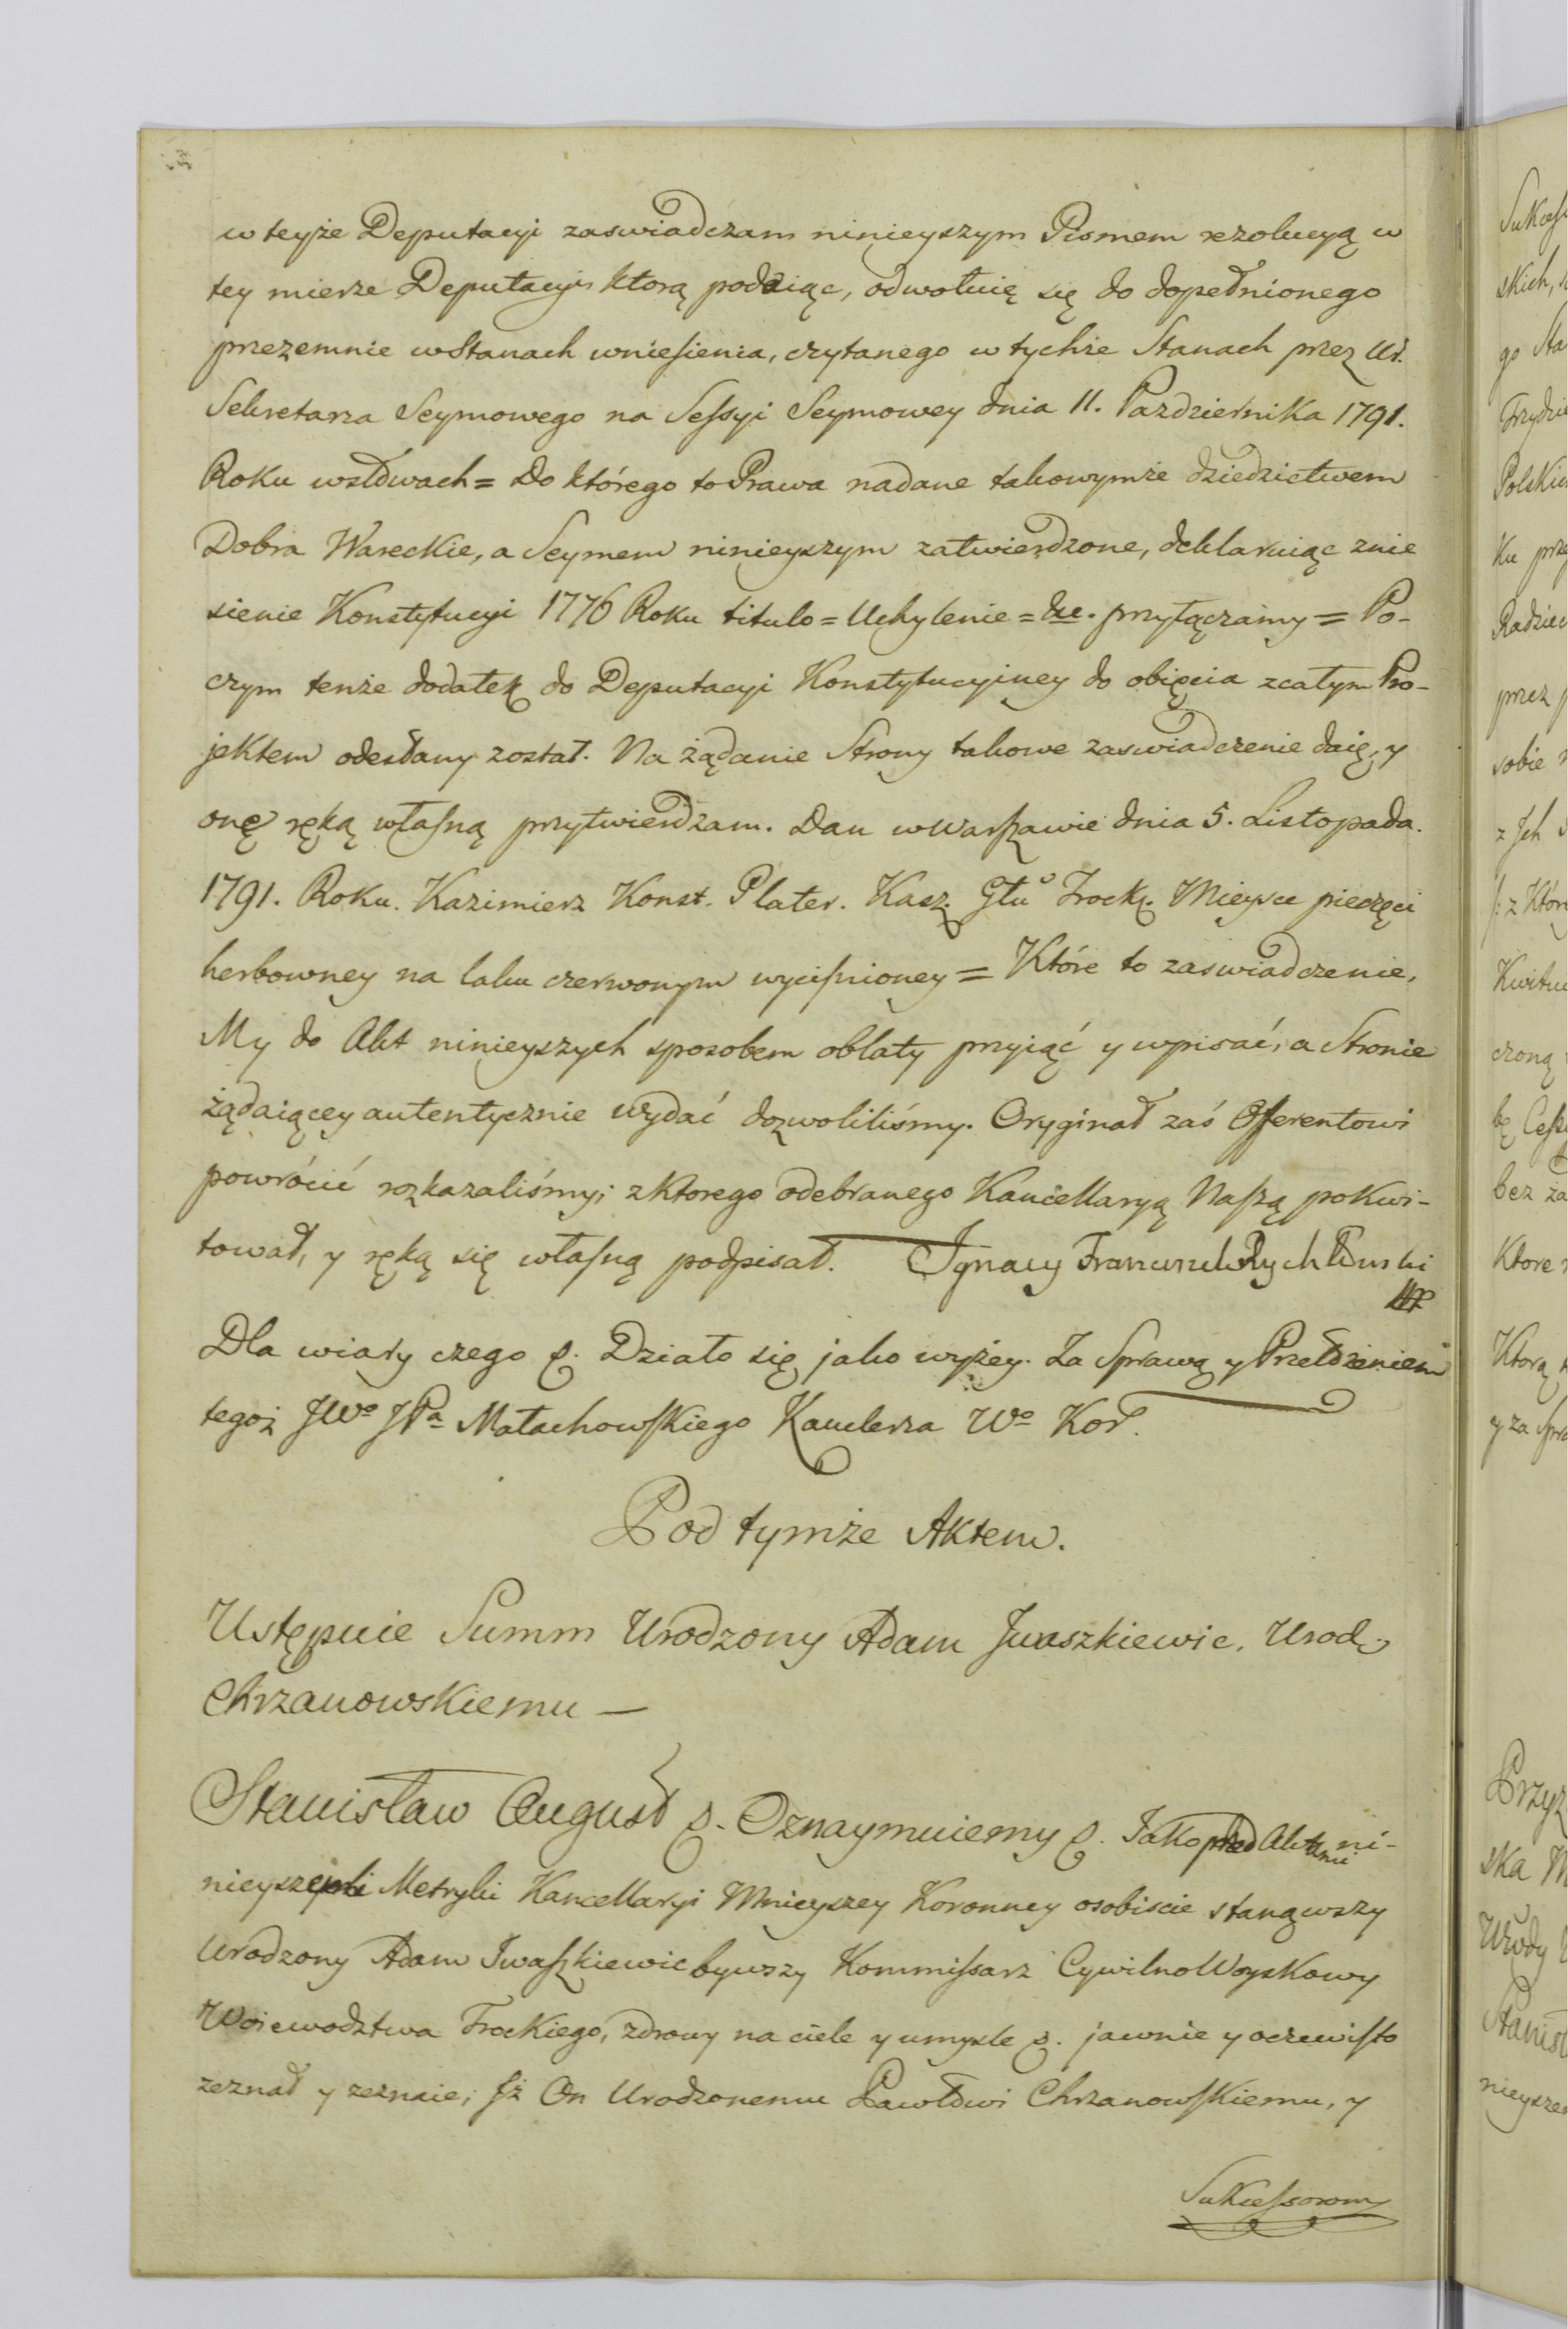 w teyże Deputacyi zaswiadczam ninieyszym Pismem rezolucyą w
tey mierze Deputacyi, ktorą podaiąc, odwołuię się do dopełnionego
przezemnie w Stanach wniesienia, czytanego w tychże Stanach przez Ur.
Sekretarza Seymowego na Sessyi Seymowey dnia 11. Pazdziernika 1791.
Roku w słowach = Do którego to Prawa nadane takowymże dziedzictwem
Dobra Wareckie, a Seymem ninieyszym zatwierdzone, deklaruiąc znie
sienie Konstytucyi 1776 Roku titulo = Uchylenie = &c. przyłączamy = Po-
czym tenże dodatek do Deputacyi Konstytucyiney do obięcia z całym Pro-
jektem odesłany został. Na żądanie Strony takowe zaswiadczenie daię, y
onę ręką własną przytwierdzam. Dan w Warszawie dnia 5. Listopada.
1791. Roku. Kazimierz Konst. Plater. Kasz. Głu° Trocki. Mieysce pieczęci
herbowney na laku czerwonym wycisnioney = Które to zaswiadczenie,
My do Akt ninieyszych sposobem oblaty przyiąć y wpisać, a Stronie
żądaiącey autentycznie wydać dozwoliliśmy. Oryginał zaś Offerentowi
powrócić rozkazaliśmy; z ktorego odebranego Kancellaryą Naszą pokwi-
tował, y ręką się własną podpisał. Ignacy Franciszek Rychłowski
mp
Dla wiary czego &. Działo się jako wyżey. Za Sprawą y Przełożeniem
tegoż JWo JPa Małachowskiego Kanclerza Wo Kor.
Pod tymże Aktem.
Ustępuie Summ Urodzony Adam Iwaszkiewic, Urod.
Chrzanowskiemu —
Stanisław August &. Oznaymuiemy &. Iako przed Aktami ni-
nieyszemi Metryki Kancellaryi Mnieyszey Koronney osobiscie stanąwszy
Urodzony Adam Iwaszkiewic bywszy Kommissarz Cywilno Woyskowy
Woiewodztwa Trockiego, zdrowy na ciele y umysle &. jawnie y oczewisto
zeznał y zeznaie; Iż On Urodzonemu Pawłowi Chrzanowskiemu, y
Sukcessorom